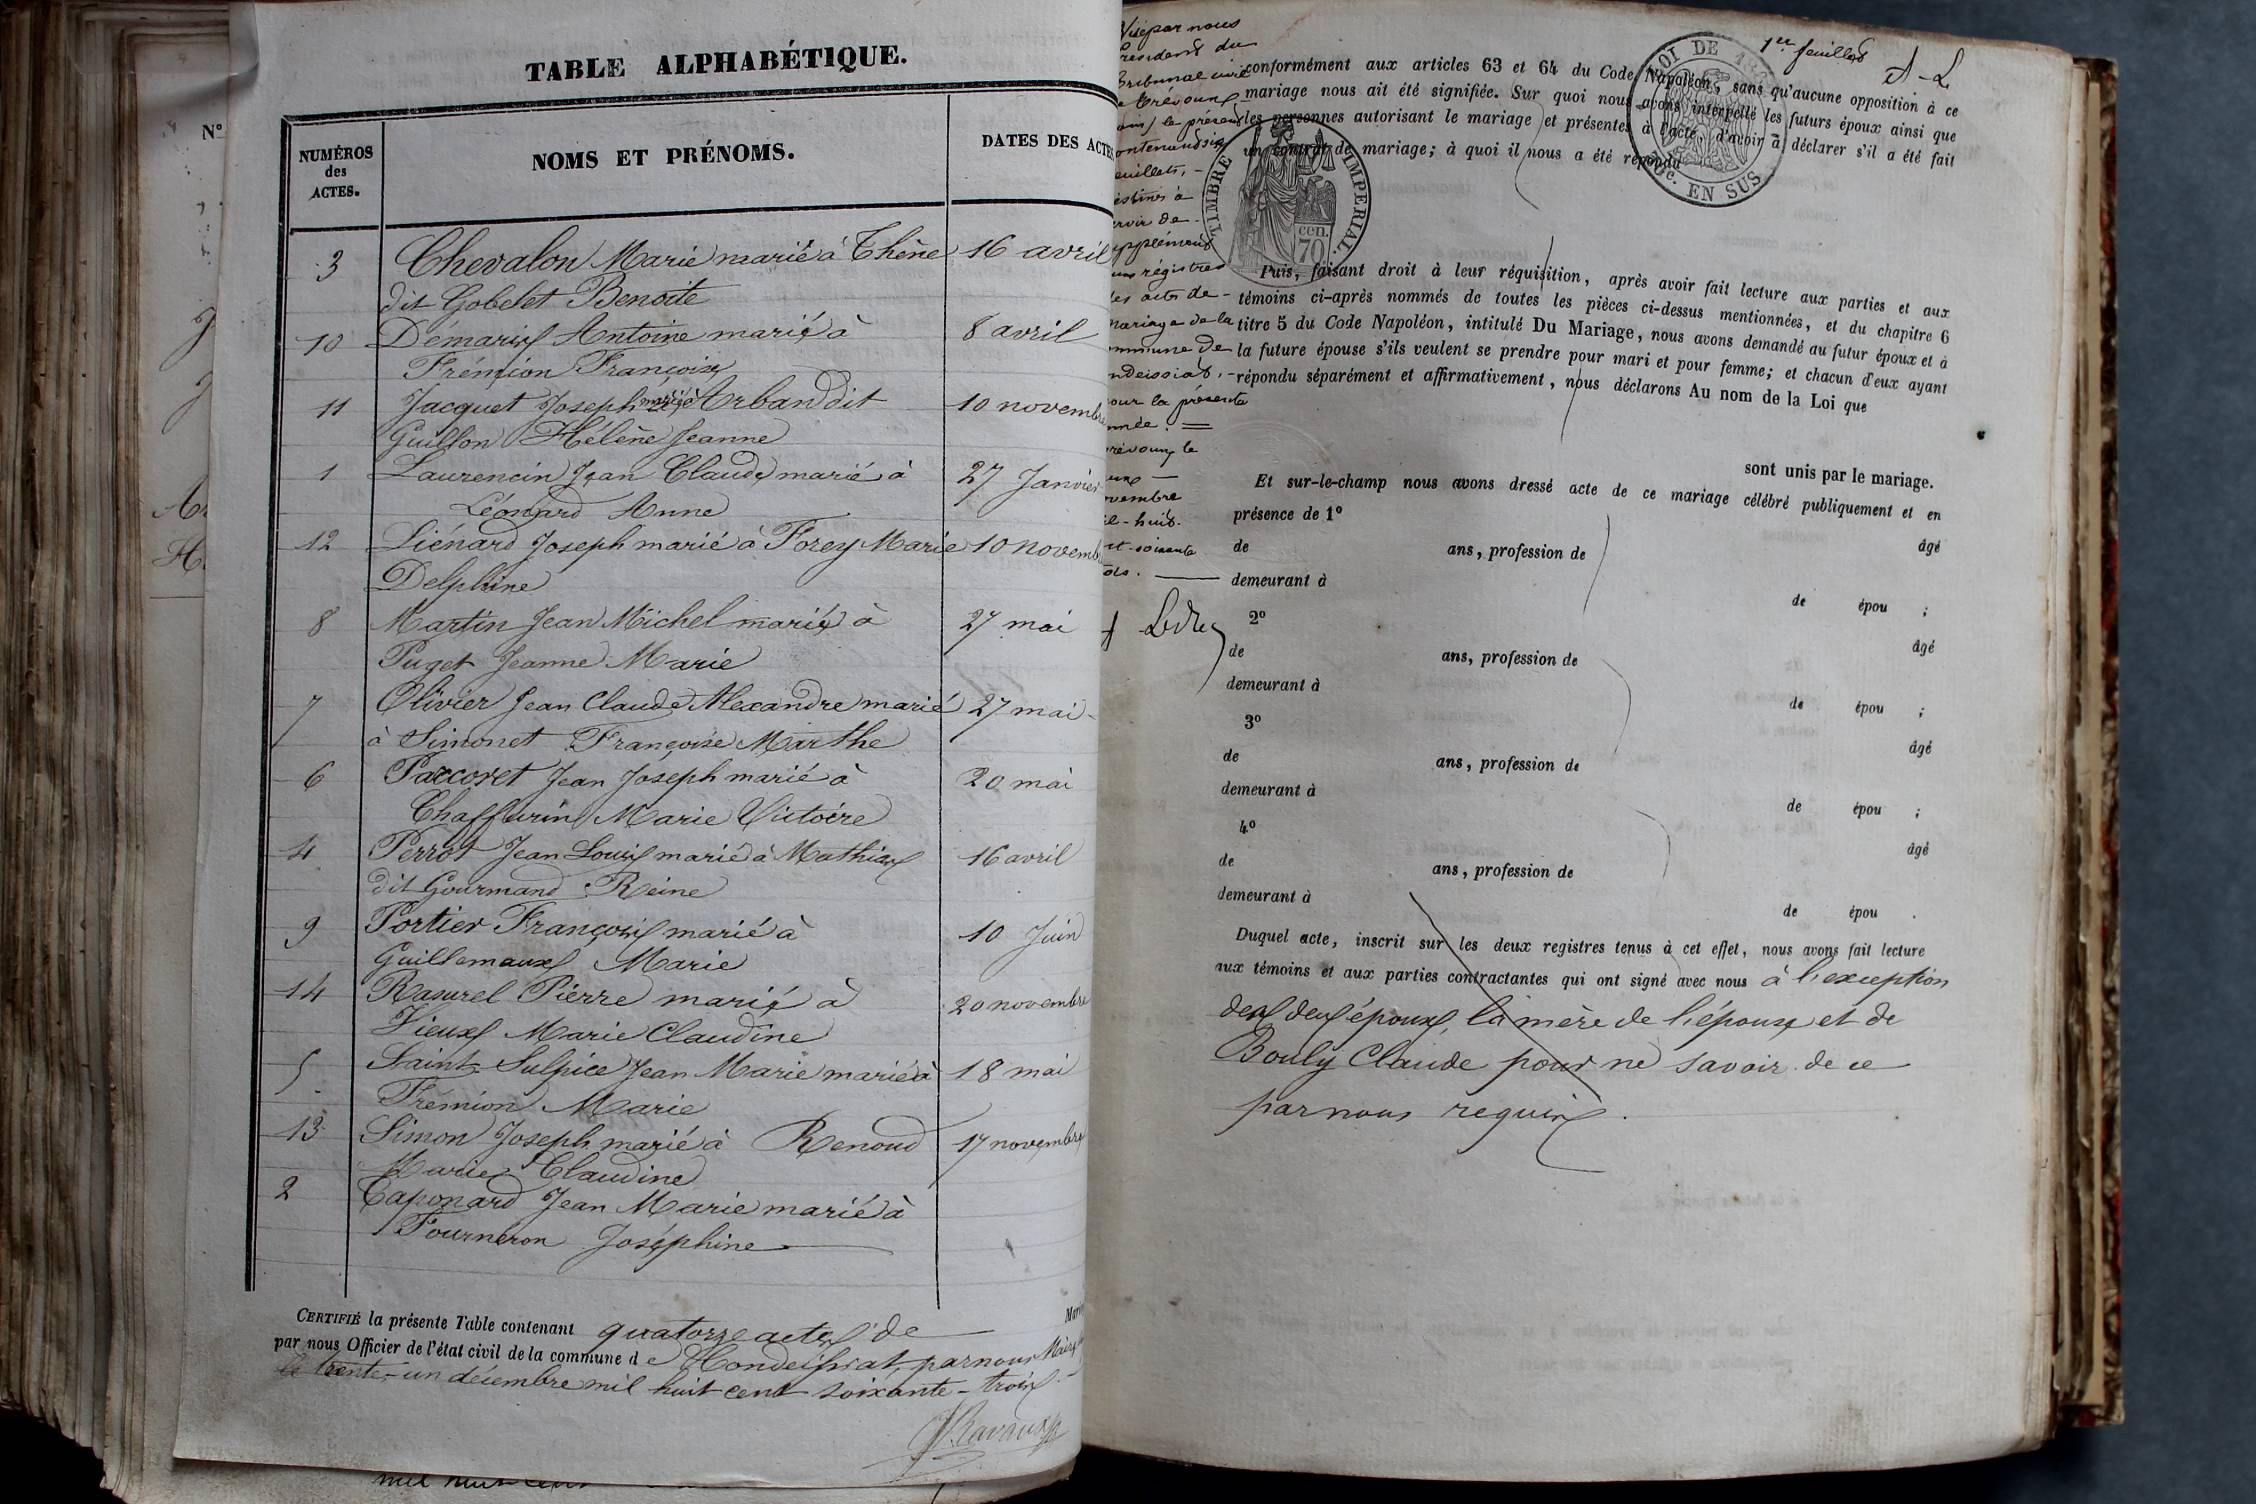 TABLE ALPHABÉTIQUE.
NUMÉROS des ACTES.
NOMS ET PRÉNOMS.
DATES DES ACTES
3 Chevalon Marie marié à Thène 16 avril
dit Gobelet Benoite
10 Démarix Antoine marié à 8 avril
Frémion Françoise
11 Jacquet Joseph marié à Arban dit 10 novembre
Guillon Hélène Jeanne
1 Laurencin Jean Claude marié à 27 Janvier
Léonard Anne
12 Liénard Joseph marié à Forey Marie 10 novemb
Delphine
8 Martin Jean Michel marié à 27 mai
Puget Jeanne Marie
7 Olivier Jean Claude Alexandre marié 27 mai
à Simonet Françoise Marthe
6 Paccoret Jean Joseph marié à 20 mai
Chaffurin Marie Victoire
4 Perrot Jean Louis marié à Mathias 16 avril
dit Gourmand Reine
9 Portier François marié à 10 Juin
Guillemaux Marie
14 Rasurel Pierre marié à 20 novembre
Vieux Marie Claudine
5 Saint-Sulpice Jean Marie marié à 18 mai
Frémion Marie
13 Simon Joseph marié à Renoud 17 novembre
Marie Claudine
2 Taponard Jean Marie marié à
Fourneron Joséphine
CERTIFIÉ la présente Table contenant quatorze actes de
par nous Officier de l'état civil de la commune de Condeissiat, par nous Maire
le trente-un décembre mil huit cent soixante-trois.
Visé par nous
résident du
Tribunal civil
e Trévoux
le présent
ontenant six
euillets, -
estinés à
ervir de -
upplément
ux régistres
es actes de -
mariage de la
ommune de
ndeissiat, -
our la présente
nnée. =
révoux le
onze —
ovembre
il-huit-
nt-soixante
ois. —
1er feuillet
A-L
LOI DE
10c. EN SUS
TIMBRE IMPERIAL.
70 cen.
conformément aux articles 63 et 64 du Code Napoléon, sans qu'aucune opposition à ce
mariage nous ait été signifiée. Sur quoi nous avons interpellé les futurs époux ainsi que
les personnes autorisant le mariage et présentes à l'acte d'avoir à déclarer s'il a été fait
un contrat de mariage; à quoi il nous a été répondu
Puis, faisant droit à leur réquisition, après avoir fait lecture aux parties et aux
témoins ci-après nommés de toutes les pièces ci-dessus mentionnées, et du chapitre 6
titre 5 du Code Napoléon, intitulé Du Mariage, nous avons demandé au futur époux et à
la future épouse s'ils veulent se prendre pour mari et pour femme; et chacun d'eux ayant
répondu séparément et affirmativement, nous déclarons Au nom de la Loi que
sont unis par le mariage.
Et sur-le-champ nous avons dressé acte de ce mariage célébré publiquement et en
présence de 1º
âgé
de ans, profession de
demeurant à
de épou ;
2º
âgé
de ans, profession de
demeurant à
de épou ;
3º
âgé
de ans, profession de
demeurant à
de épou ;
4º
âgé
de ans, profession de
demeurant à
de épou .
Duquel acte, inscrit sur les deux registres tenus à cet effet, nous avons fait lecture
aux témoins et aux parties contractantes qui ont signé avec nous à l'exception
des deux époux, la mère de l'épouse et de
Bouly Claude pour ne savoir de ce
par nous requis.